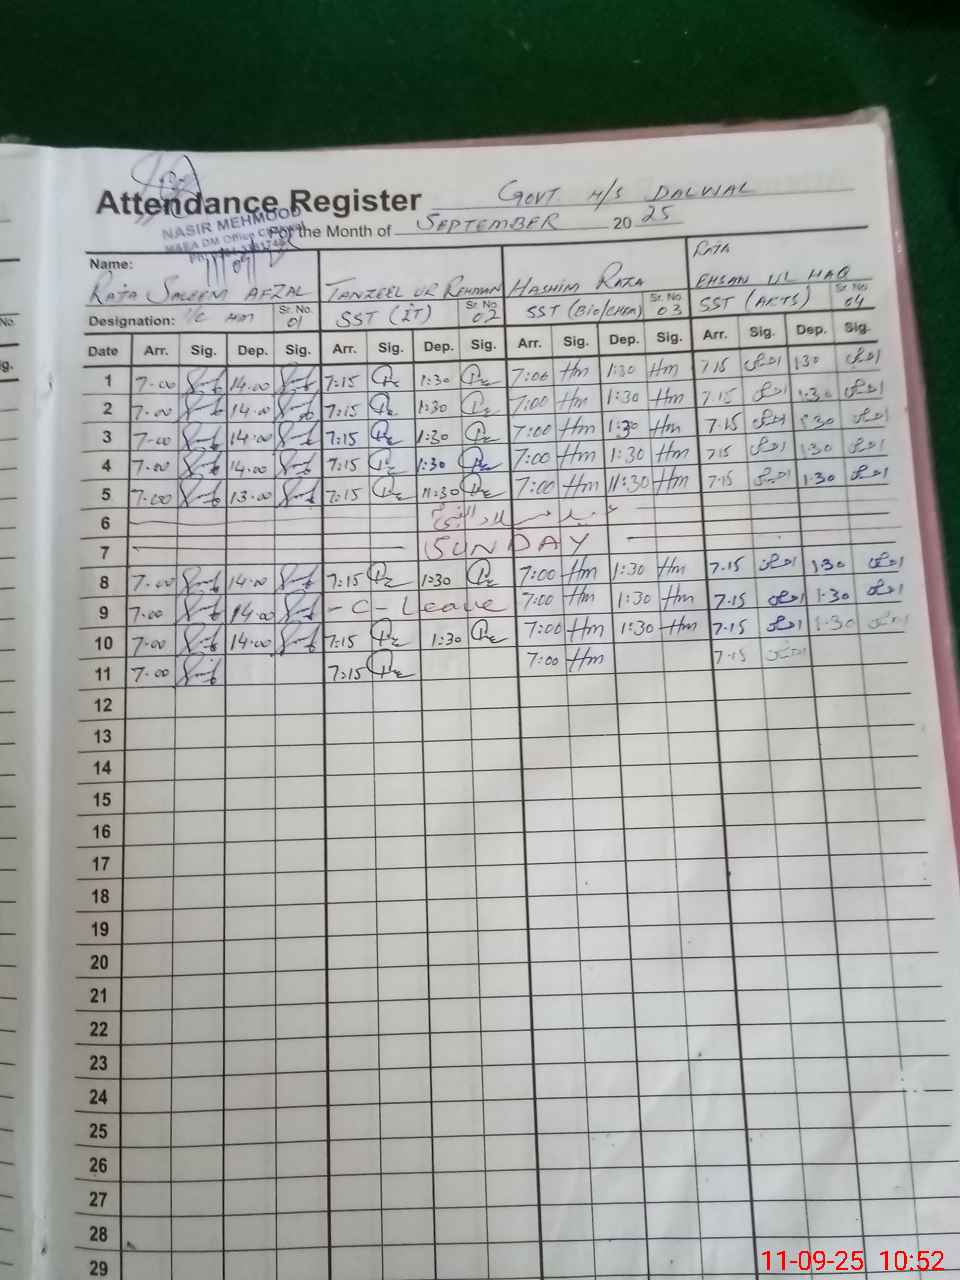 Attendance Register GOVT H/S DALWAL
NASIR MEHMOOD
For the Month of SEPTEMBER 2025
Name:
RAJA SALEEM AFZAL TANZEEL UR REHMAN HASHIM RAZA RAJA EHSAN UL HAQ
Designation: I/C HM Sr. No. 01 SST (IT) Sr. No. 02 SST (Bio/CHEM) Sr. No. 03 SST (ARTS) Sr. No. 04
Date Arr. Sig. Dep. Sig. Arr. Sig. Dep. Sig. Arr. Sig. Dep. Sig. Arr. Sig. Dep. Sig.
1 7-00 14-00 7:15 1:30 7:00 Hm 1:30 Hm 7.15 1.30
2 7-00 14-00 7:15 1:30 7:00 Hm 1:30 Hm 7.15 1:30
3 7-00 14-00 7:15 1:30 7:00 Hm 1:30 Hm 7.15 1:30
4 7-00 14-00 7:15 1:30 7:00 Hm 1:30 Hm 7.15 1:30
5 7-00 13-00 7:15 11:30 7:00 Hm 11:30 Hm 7.15 1:30
6
7 SUNDAY
8 7-00 14-00 7:15 1:30 7:00 Hm 1:30 Hm 7.15 1:30
9 7-00 14-00 -C-Leave 7:00 Hm 1:30 Hm 7.15 1:30
10 7-00 14-00 7:15 1:30 7:00 Hm 1:30 Hm 7.15 1:30
11 7-00 7:15 7:00 Hm 7.15
12
13
14
15
16
17
18
19
20
21
22
23
24
25
26
27
28
29
11-09-25 10:52